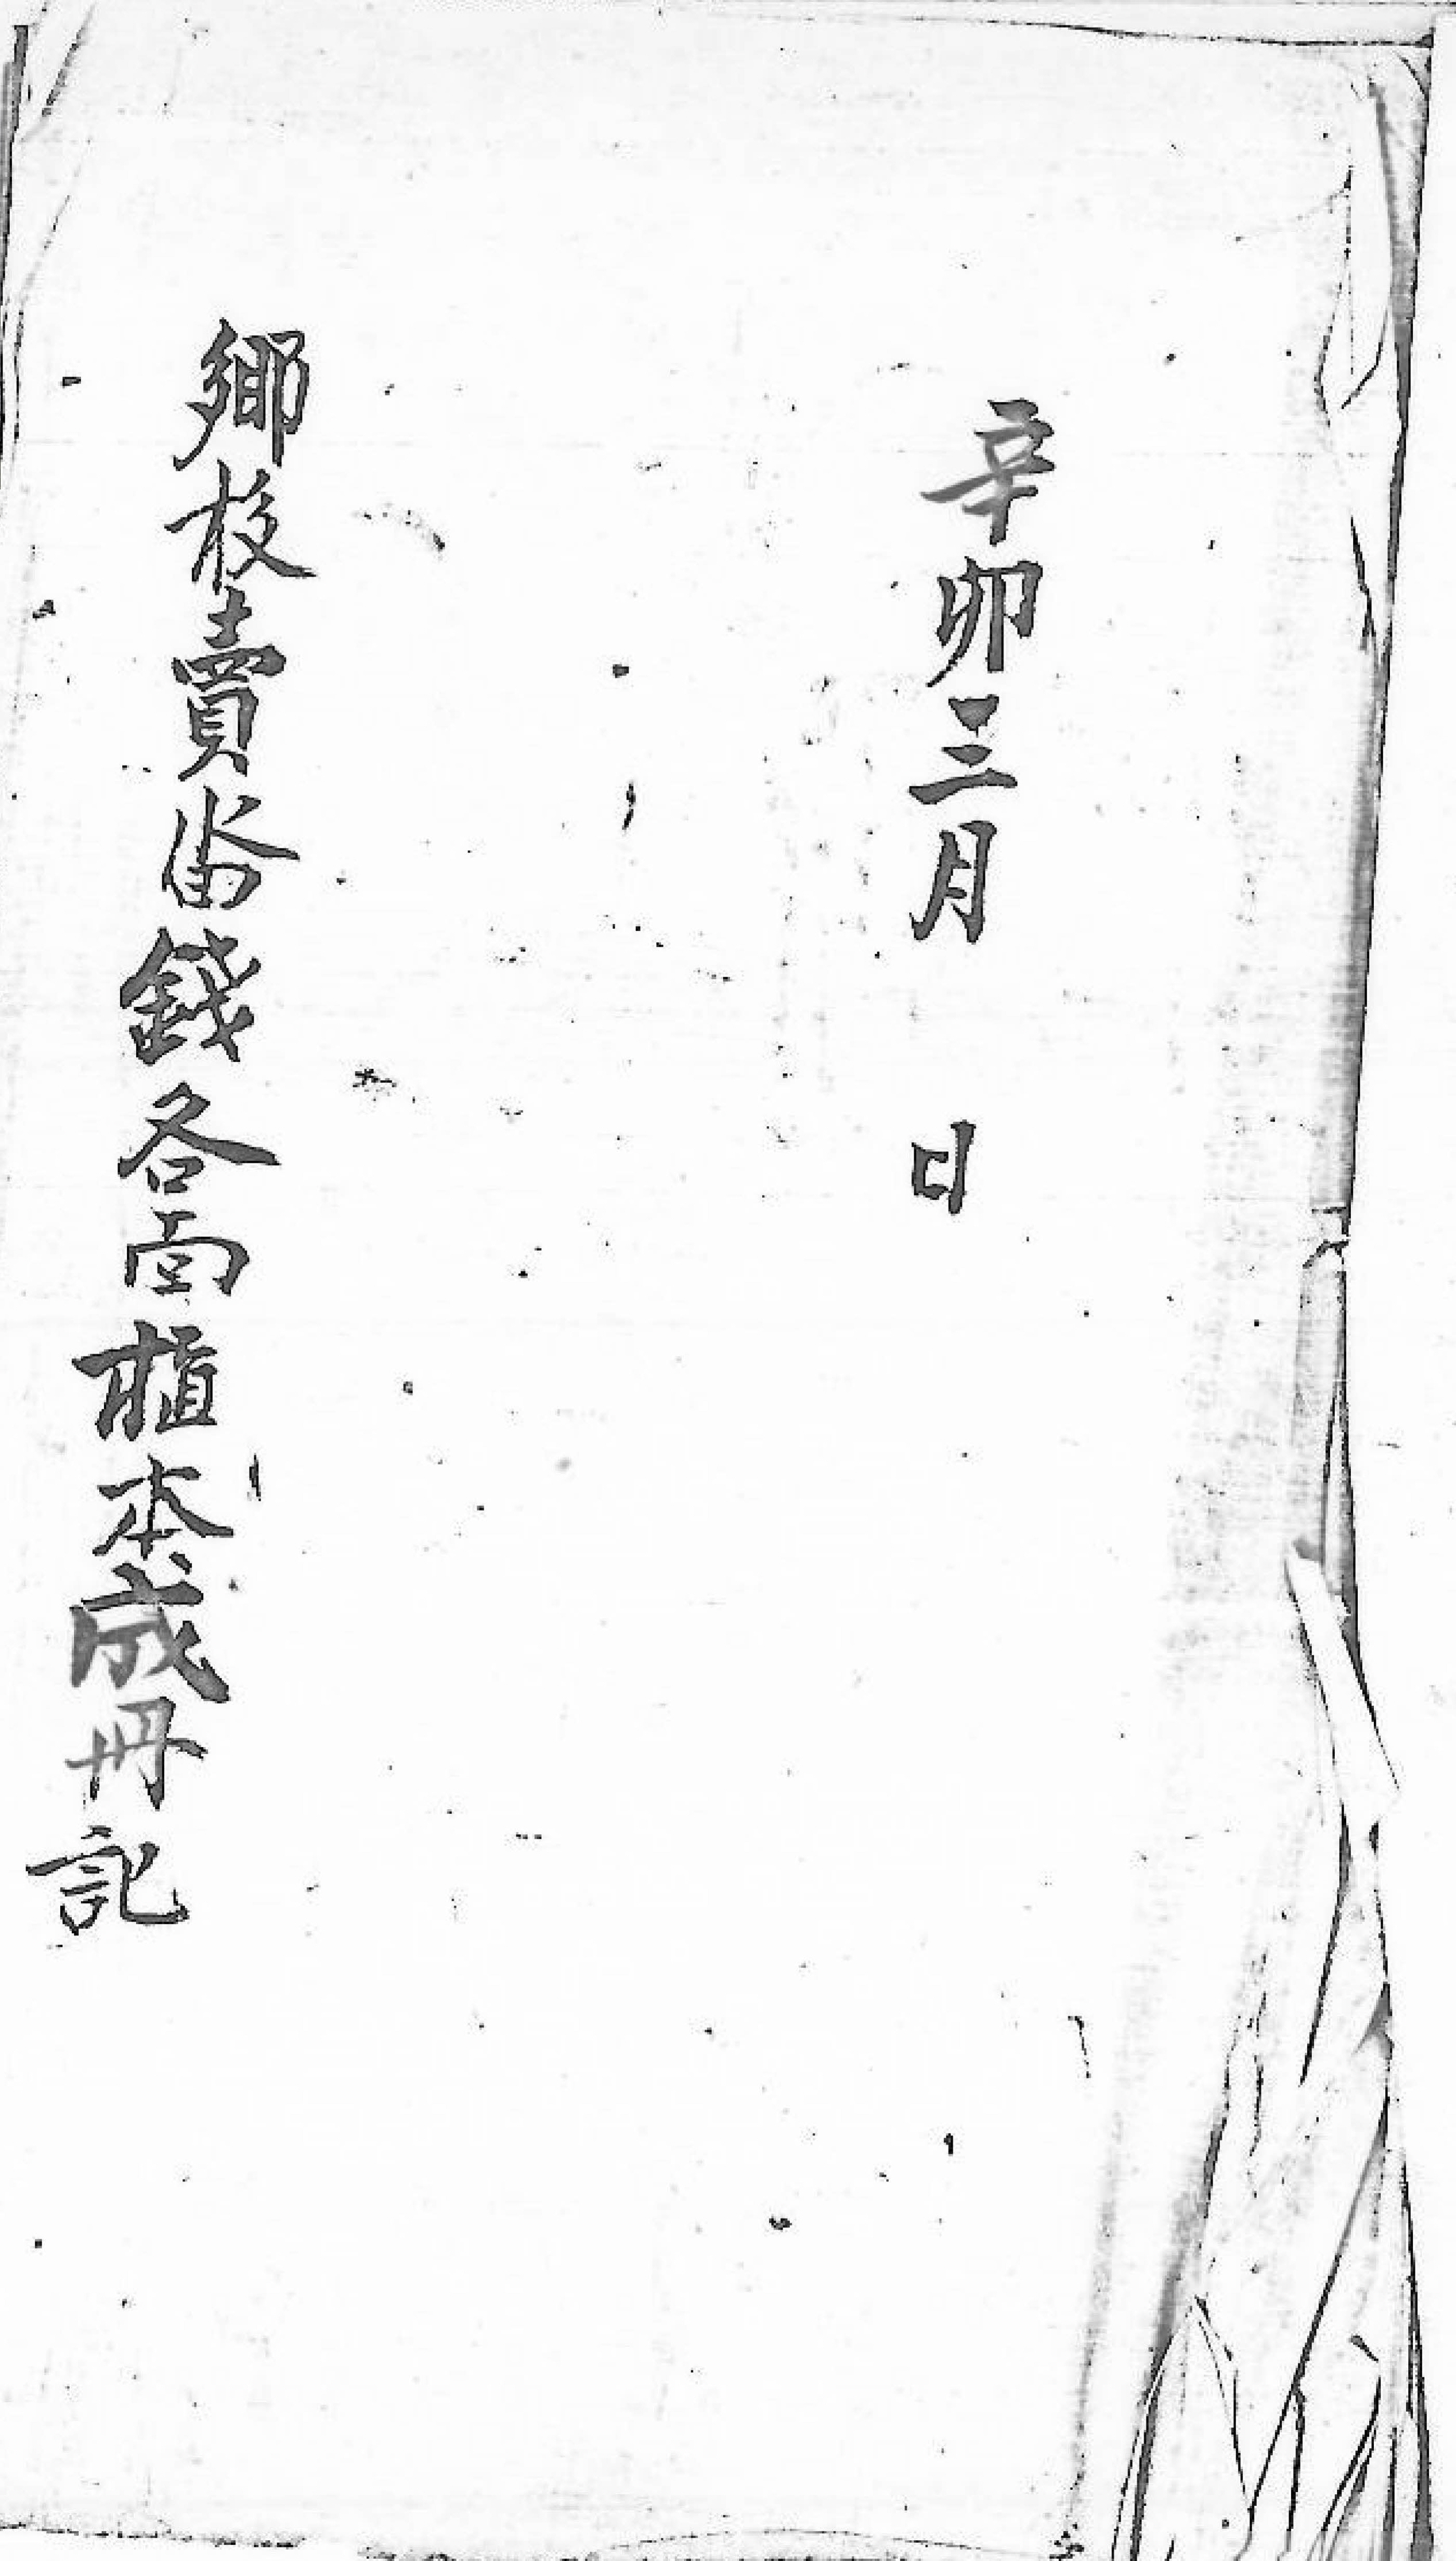 辛卯三月 日
鄕校賣畓錢各面植本成冊記